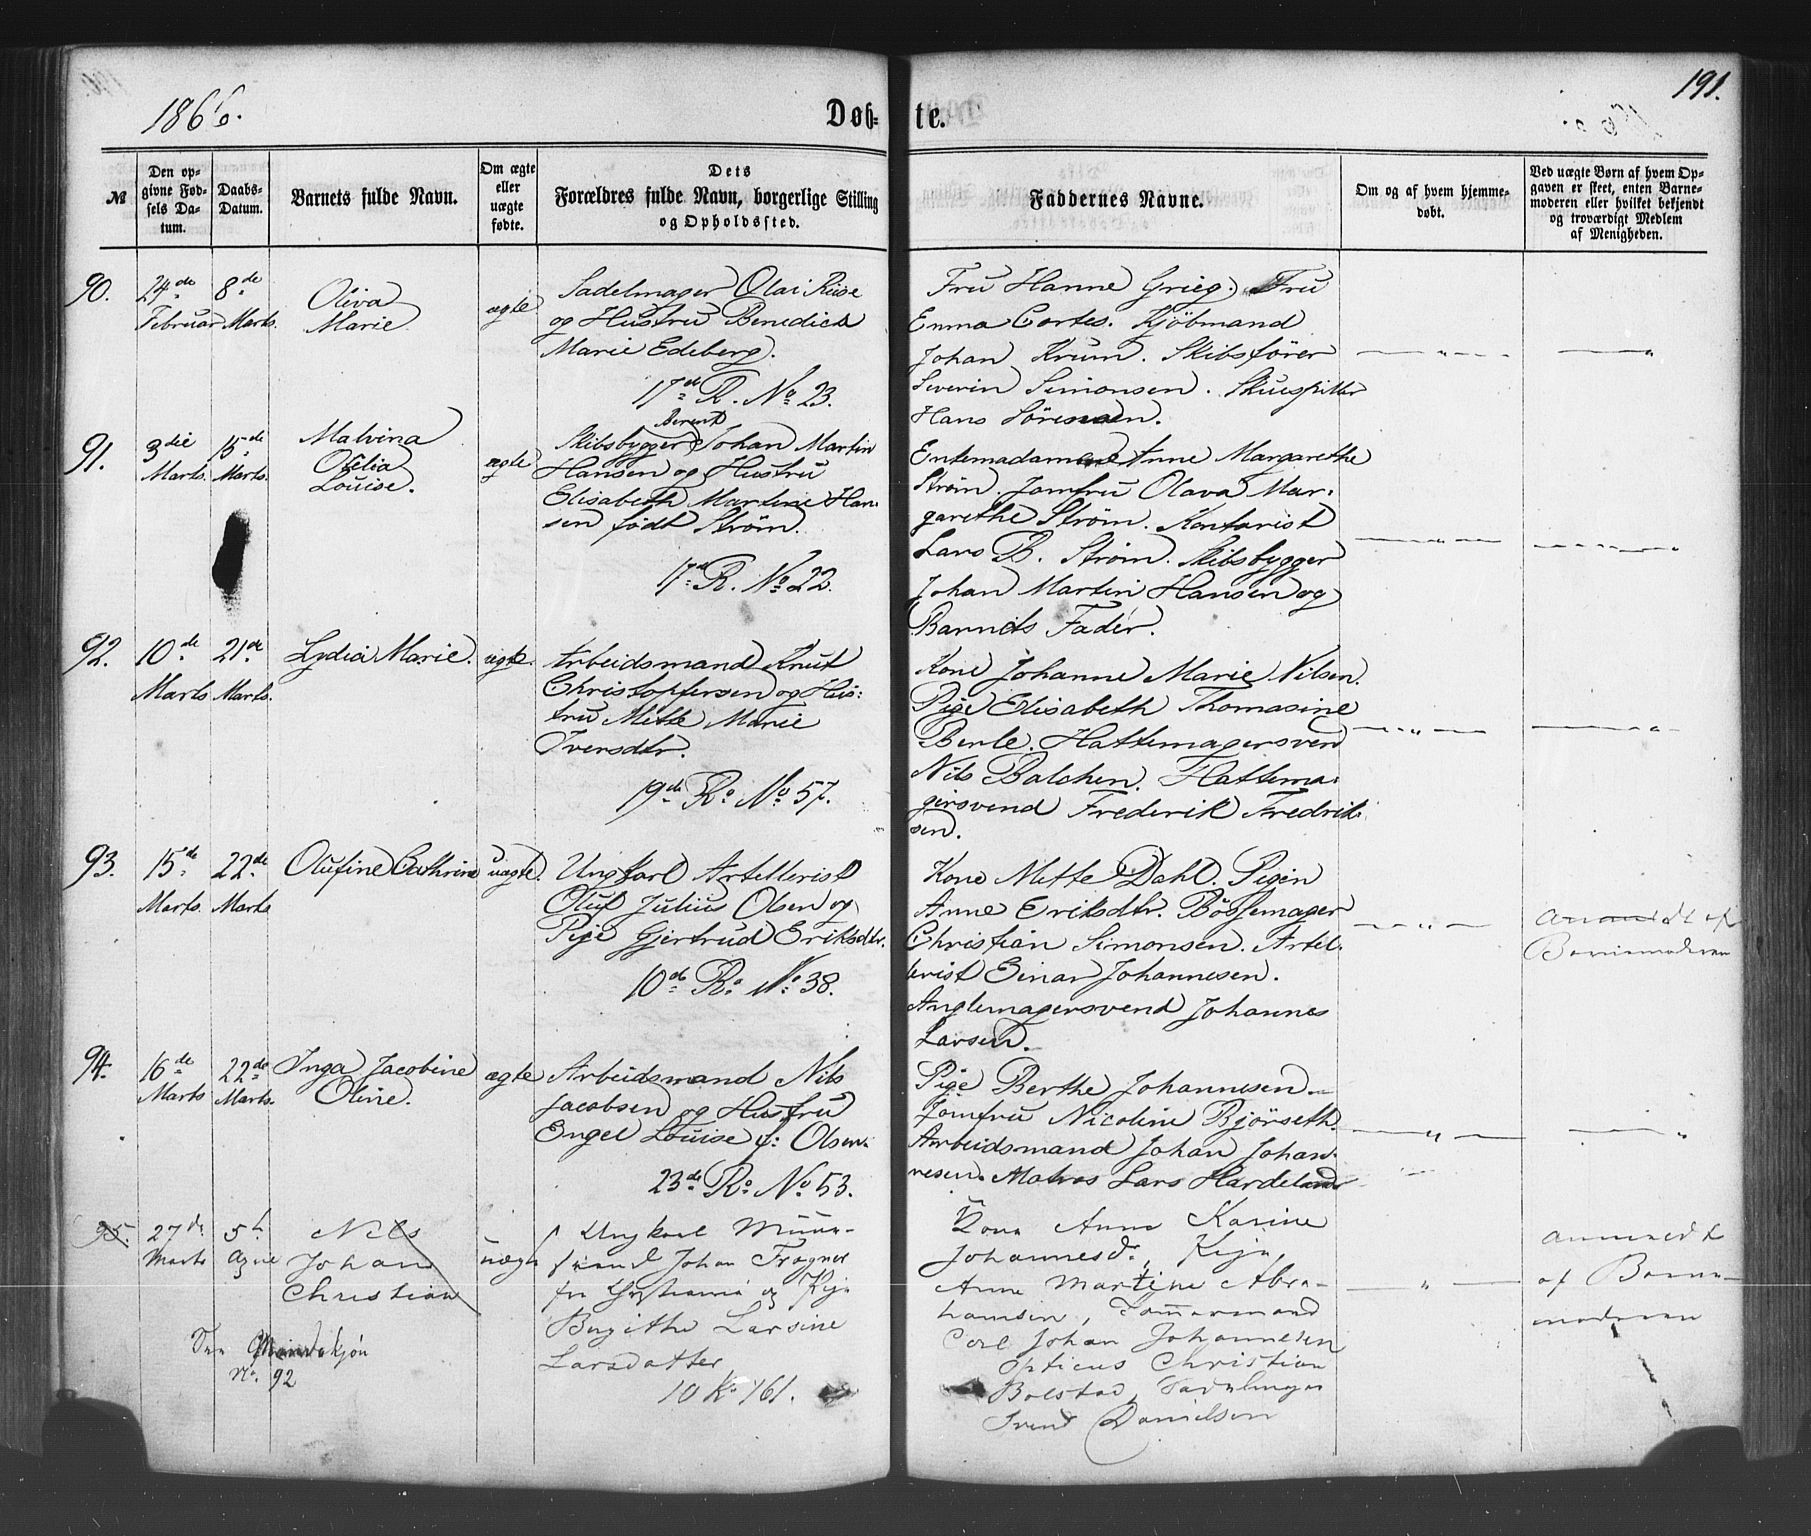 191.
1866.
Døb- te.
№
Den op-
givne Fød-
sels Da-
tum.
Daabs-
Datum.
Barnets fulde Navn.
Om ægte
eller
uægte
fødte.
Dets
Forældres fulde Navn, borgerlige Stilling
og Opholdssted.
Faddernes Navne.
Om og af hvem hjemme-
døbt.
Ved uægte Børn af hvem Op-
gaven er skeet, enten Barne-
moderen eller hvilket bekjendt
og troværdigt Medlem
af Menigheden.
90.
24de
Februar
8de
Marts.
Oliva
Marie
ægte
Sadelmager Olai Riise
og Hustru Benedicte
Marie Edeberg.
17de R. No 23.
Fru Hanne Grieg. Fru
Emma Cortes. Kjöbmand
Johan Krum. Skibsfører
Severin Simonsen. Skuespiller
Hans Sörensen.
91.
3die
Marts.
15de
Marts.
Malvina
Ofelia
Louise.
ægte
Berent
Skibsbygger Johan Martin
Hansen og Hustru
Elisabeth Martine Han-
sen født Strøm.
17de R. No 22.
Enkemadame Anne Margarethe
Strøm. Jomfru Olava Mar-
garethe Strøm. Kontorist
Lars B. Strøm. Skibsbygger
Johan Martin Hansen og
Barnets Fader.
92.
10de
Marts
21de
Marts.
Lydia Marie.
ægte.
Arbeidsmand Knut
Christopfersen og Hus-
tru Mette Marie
Iversdtr.
19de Ro No 57.
Kone Johanne Marie Nilsen.
Pige Elisabeth Thomasine
Berle. Hattemagersvend
Nils Balchen. Hattema-
gersvend Frederik Fredrik-
sen.
93.
15de
Marts.
22de
Marts
Olufine Cathrine
uægte.
Ungkarl Artellerist
Oluf Julius Olsen og
Pige Gjertrud Eriksdtr.
10de Ro No 38.
Kone Mette Dahl. Pigen
Anne Eriksdtr. Bössemager
Christian Simonsen. Artel-
lerist Einar Johannesen.
Anglemagersvend Johannes
Larsen.
Anmeldt af
Barnemoderen
94.
16de
Marts
22de
Marts.
Inga Jacobine
Oline.
ægte
Arbeidsmand Nils
Jacobsen og Hustru
Engel Louise f: Olsen.
23de Ro No 53.
Pige Berthe Johannesen.
Jomfru Nicoline Bjørseth.
Arbeidsmand Johan Johan-
nesen. Matros Lars Hardeland
95.
27de
Marts
5t
Nils
Johan
Christian
uægte
Ungkarl Muur-
svend Johan Frogner
fra Christiania og Pige
Birgithe Larsine
Larsdatter
10 Ro 161.
No. 92
Kone Anne Karine
Johannesd., Pige,
Anne Martine Abra-
hamsen, Tømmermand
Carl Johan Johannesen
Opticus Christian
Bolstad, Sadelmager
Svend Danielsen
Anmeldt
af Barne-
moderen